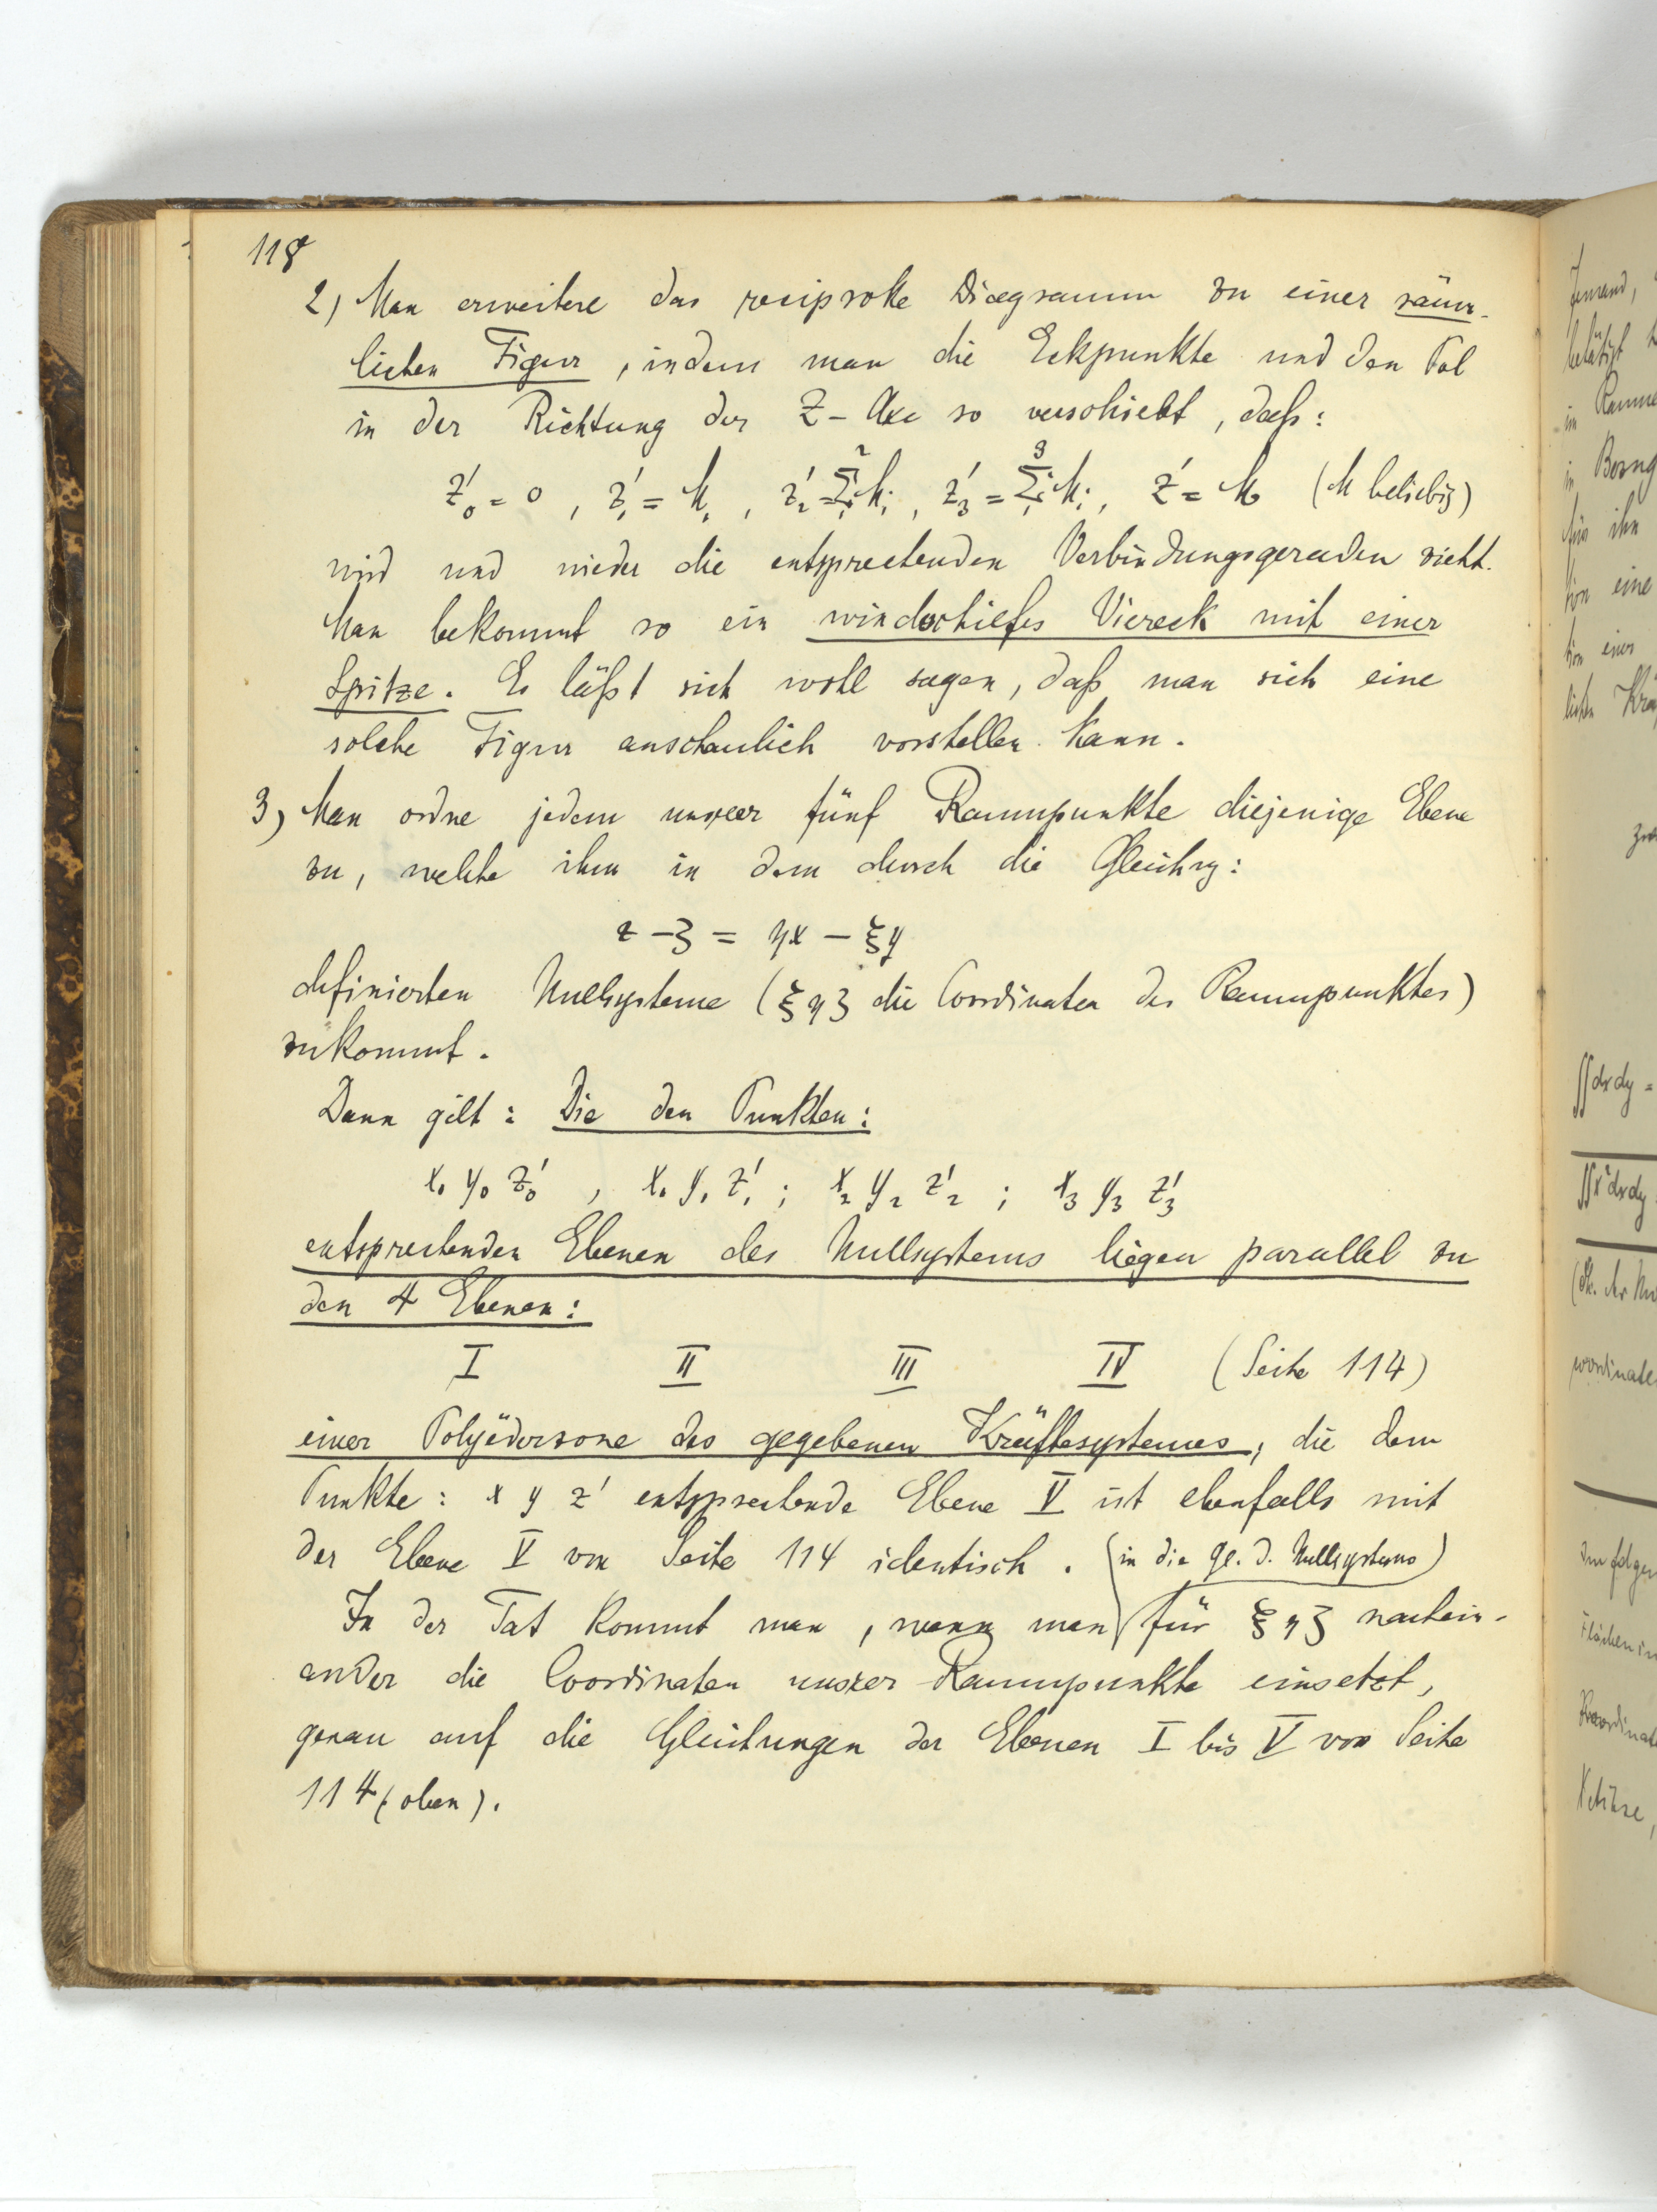 118
2) Man erweitere das reciproke Diagramm zu einer räum-
lichen Figur, indem man die Eckpunkte und den Pol
in der Richtung der Z-Axe so verschiebt, daß:
z'₀ = 0, z'₁ = M₁, z'₂ = Σ₁² Mᵢ, z'₃ = Σ₁³ Mᵢ, z' = M (M beliebig)
wird und wieder die entsprechenden Verbindungsgeraden zieht.
Man bekommt so ein windschiefes Viereck mit einer
Spitze. Es läßt sich wohl sagen, daß man sich eine
solche Figur anschaulich vorstellen kann.
3) Man ordne jedem unserer fünf Raumpunkte diejenige Ebene
zu, welche ihm in dem durch die Gleichg:
z - ζ = ηx - ξy
definierten Nullsysteme (ξ η ζ die Coordinaten des Raumpunktes)
zukommt.
Dann gilt: Die den Punkten:
x₀ y₀ z'₀, x₁ y₁ z'₁; x₂ y₂ z'₂; x₃ y₃ z'₃
entsprechenden Ebenen des Nullsystems liegen parallel zu
den 4 Ebenen:
I II III IV (Seite 114)
einer Polyëderzone des gegebenen Kräftesystemes, die dem
Punkte: x y z' entsprechende Ebene V ist ebenfalls mit
der Ebene V von Seite 114 identisch. (in die Gl. d. Nullsystems)
In der Tat kommt man, wenn man für ξ η ζ nachein-
ander die Coordinaten unsrer Raumpunkte einsetzt,
genau auf die Gleichungen der Ebenen I bis V von Seite
114 (oben).
Jemand,
betätigt
im Raume
in Bezug
für ihn
eine
lichen
∬dxdy =
Koordinat